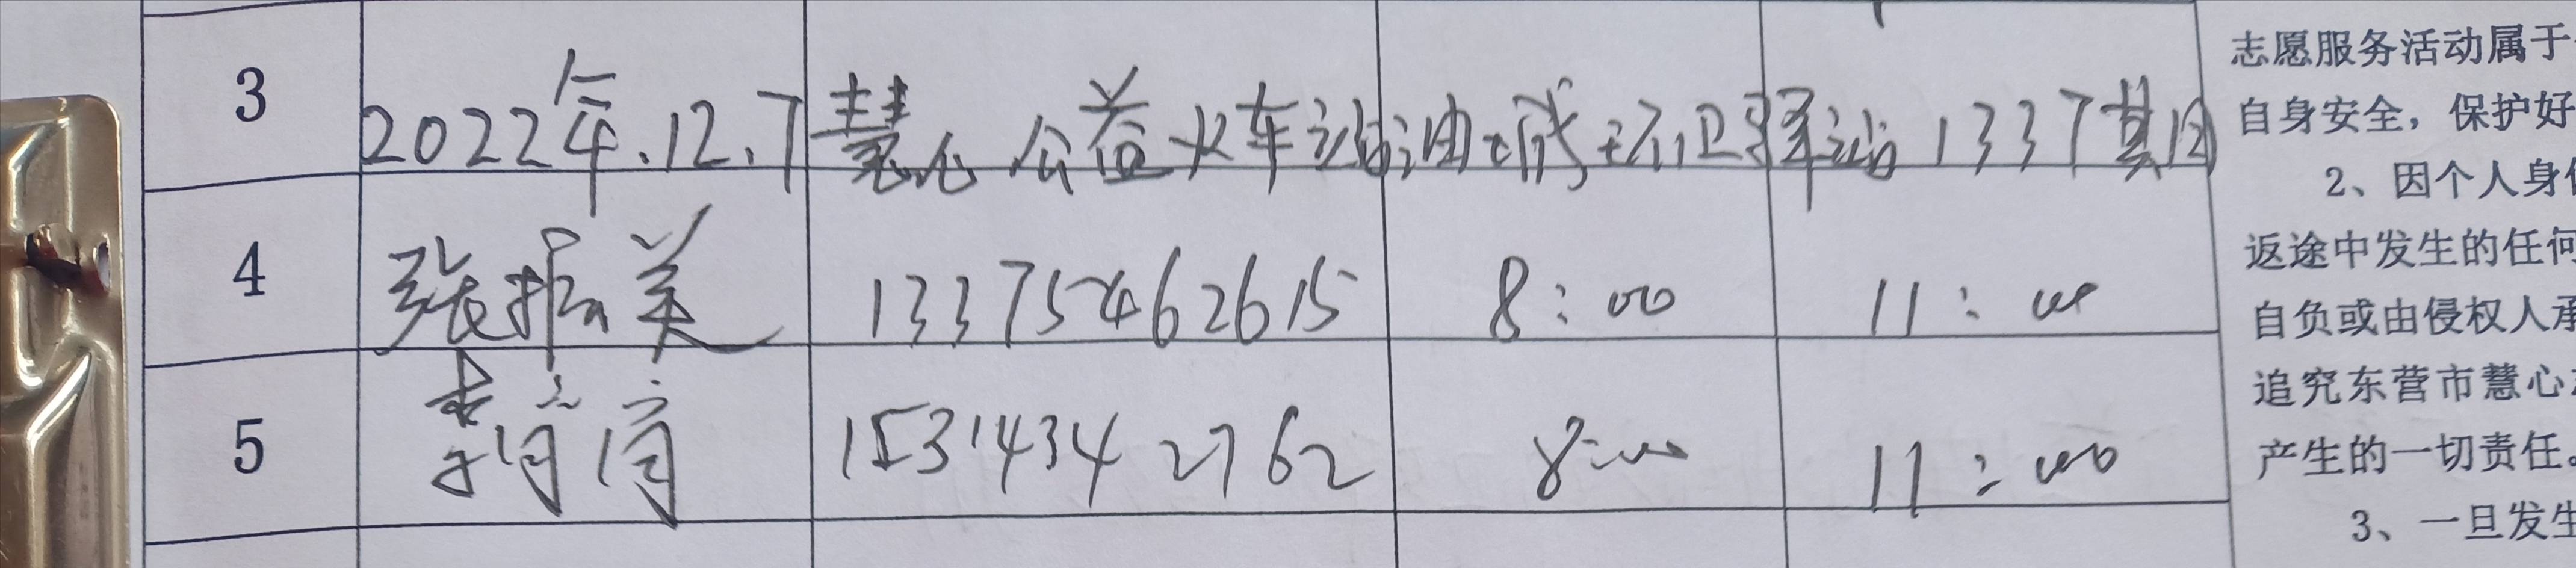 3 2022年.12.7 慧心公益火车站油城环卫驿站1337基地
4 张振美 13375462615 8:00 11:00
5 15314342762 8:00 11:00
志愿服务活动属于
自身安全，保护好
2、因个人身
返途中发生的任何
自负或由侵权人承
追究东营市慧心
产生的一切责任。
3、一旦发生